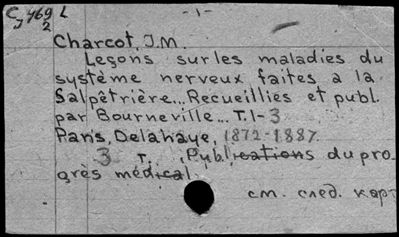 C 469 L - 1 -
2
Charcot, J.M.
Leçons sur les maladies du
système nerveux faites a la
Salpêtrière... Recueillies et publ.
par Bourneville... T.1-3
Paris, Delahaye, 1872-1887.
3 т. Publications du pro-
grès médical
см. след. карт